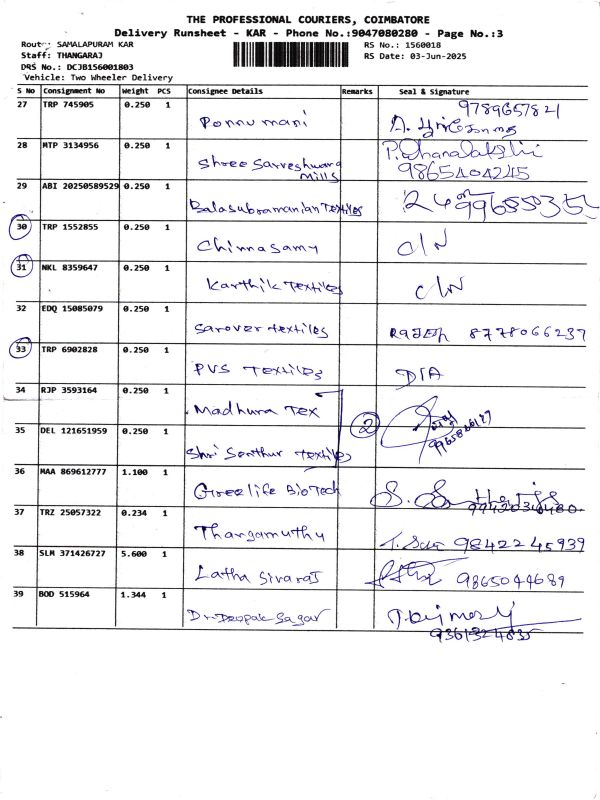 THE PROFESSIONAL COURIERS, COIMBATORE
Delivery Runsheet - KAR - Phone No.:9047080280 - Page No.:3
Route: SAMALAPURAM KAR
RS No.: 1560018
Staff: THANGARAJ
RS Date: 03-Jun-2025
DRS No.: DCJB156001803
Vehicle: Two Wheeler Delivery
S No Consignment No Weight PCS Consignee Details Remarks Seal & Signature
27 TRP 745905 0.250 1 Ponnu mani 9789657821
28 MTP 3134956 0.250 1 Shree Sarveshwara Mills P. Dhanalakshi 9865404245
29 ABI 20250589529 0.250 1 Balasubramanian Textiles
30 TRP 1552855 0.250 1 Chinnasamy C/N
31 NKL 8359647 0.250 1 Karthik Textiles C/N
32 EDQ 15085079 0.250 1 Sarover textiles 8778066237
33 TRP 6902828 0.250 1 PVS Textiles D/A
34 RJP 3593164 0.250 1 Madhura Tex 2
35 DEL 121651959 0.250 1 Shri Senthur textiles
36 MAA 869612777 1.100 1 Greelife BioTech
37 TRZ 25057322 0.234 1 Thangamuthu 9842245939
38 SLM 371426727 5.600 1 Latha Sivaraj 9865044689
39 BOD 515964 1.344 1 Dr-Deepak Sagar 9361324835